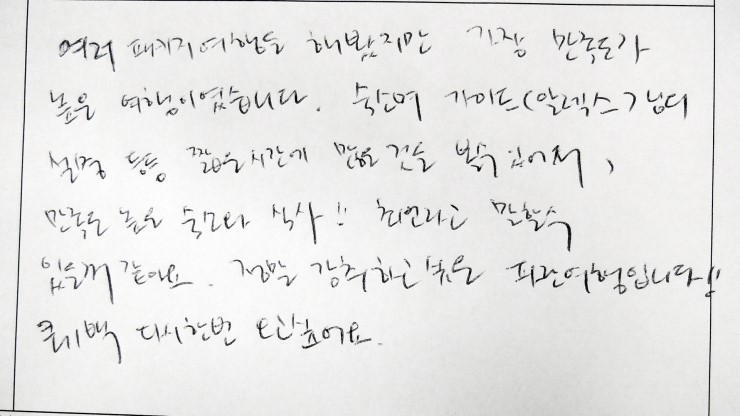 여러 패키지여행들 해봤지만 가장 만족도가
높은 여행이였습니다. 숙소며 가이드(알렉스)님의
설명 등등 짧은시간에 많은것을 볼수 있어서,
만족도 높은 숙소와 식사!! 최고라고 말할수
있을꺼 같아요. 정말 강추하고싶은 여행입니다!!
퀘백 다시한번 오고싶어요.